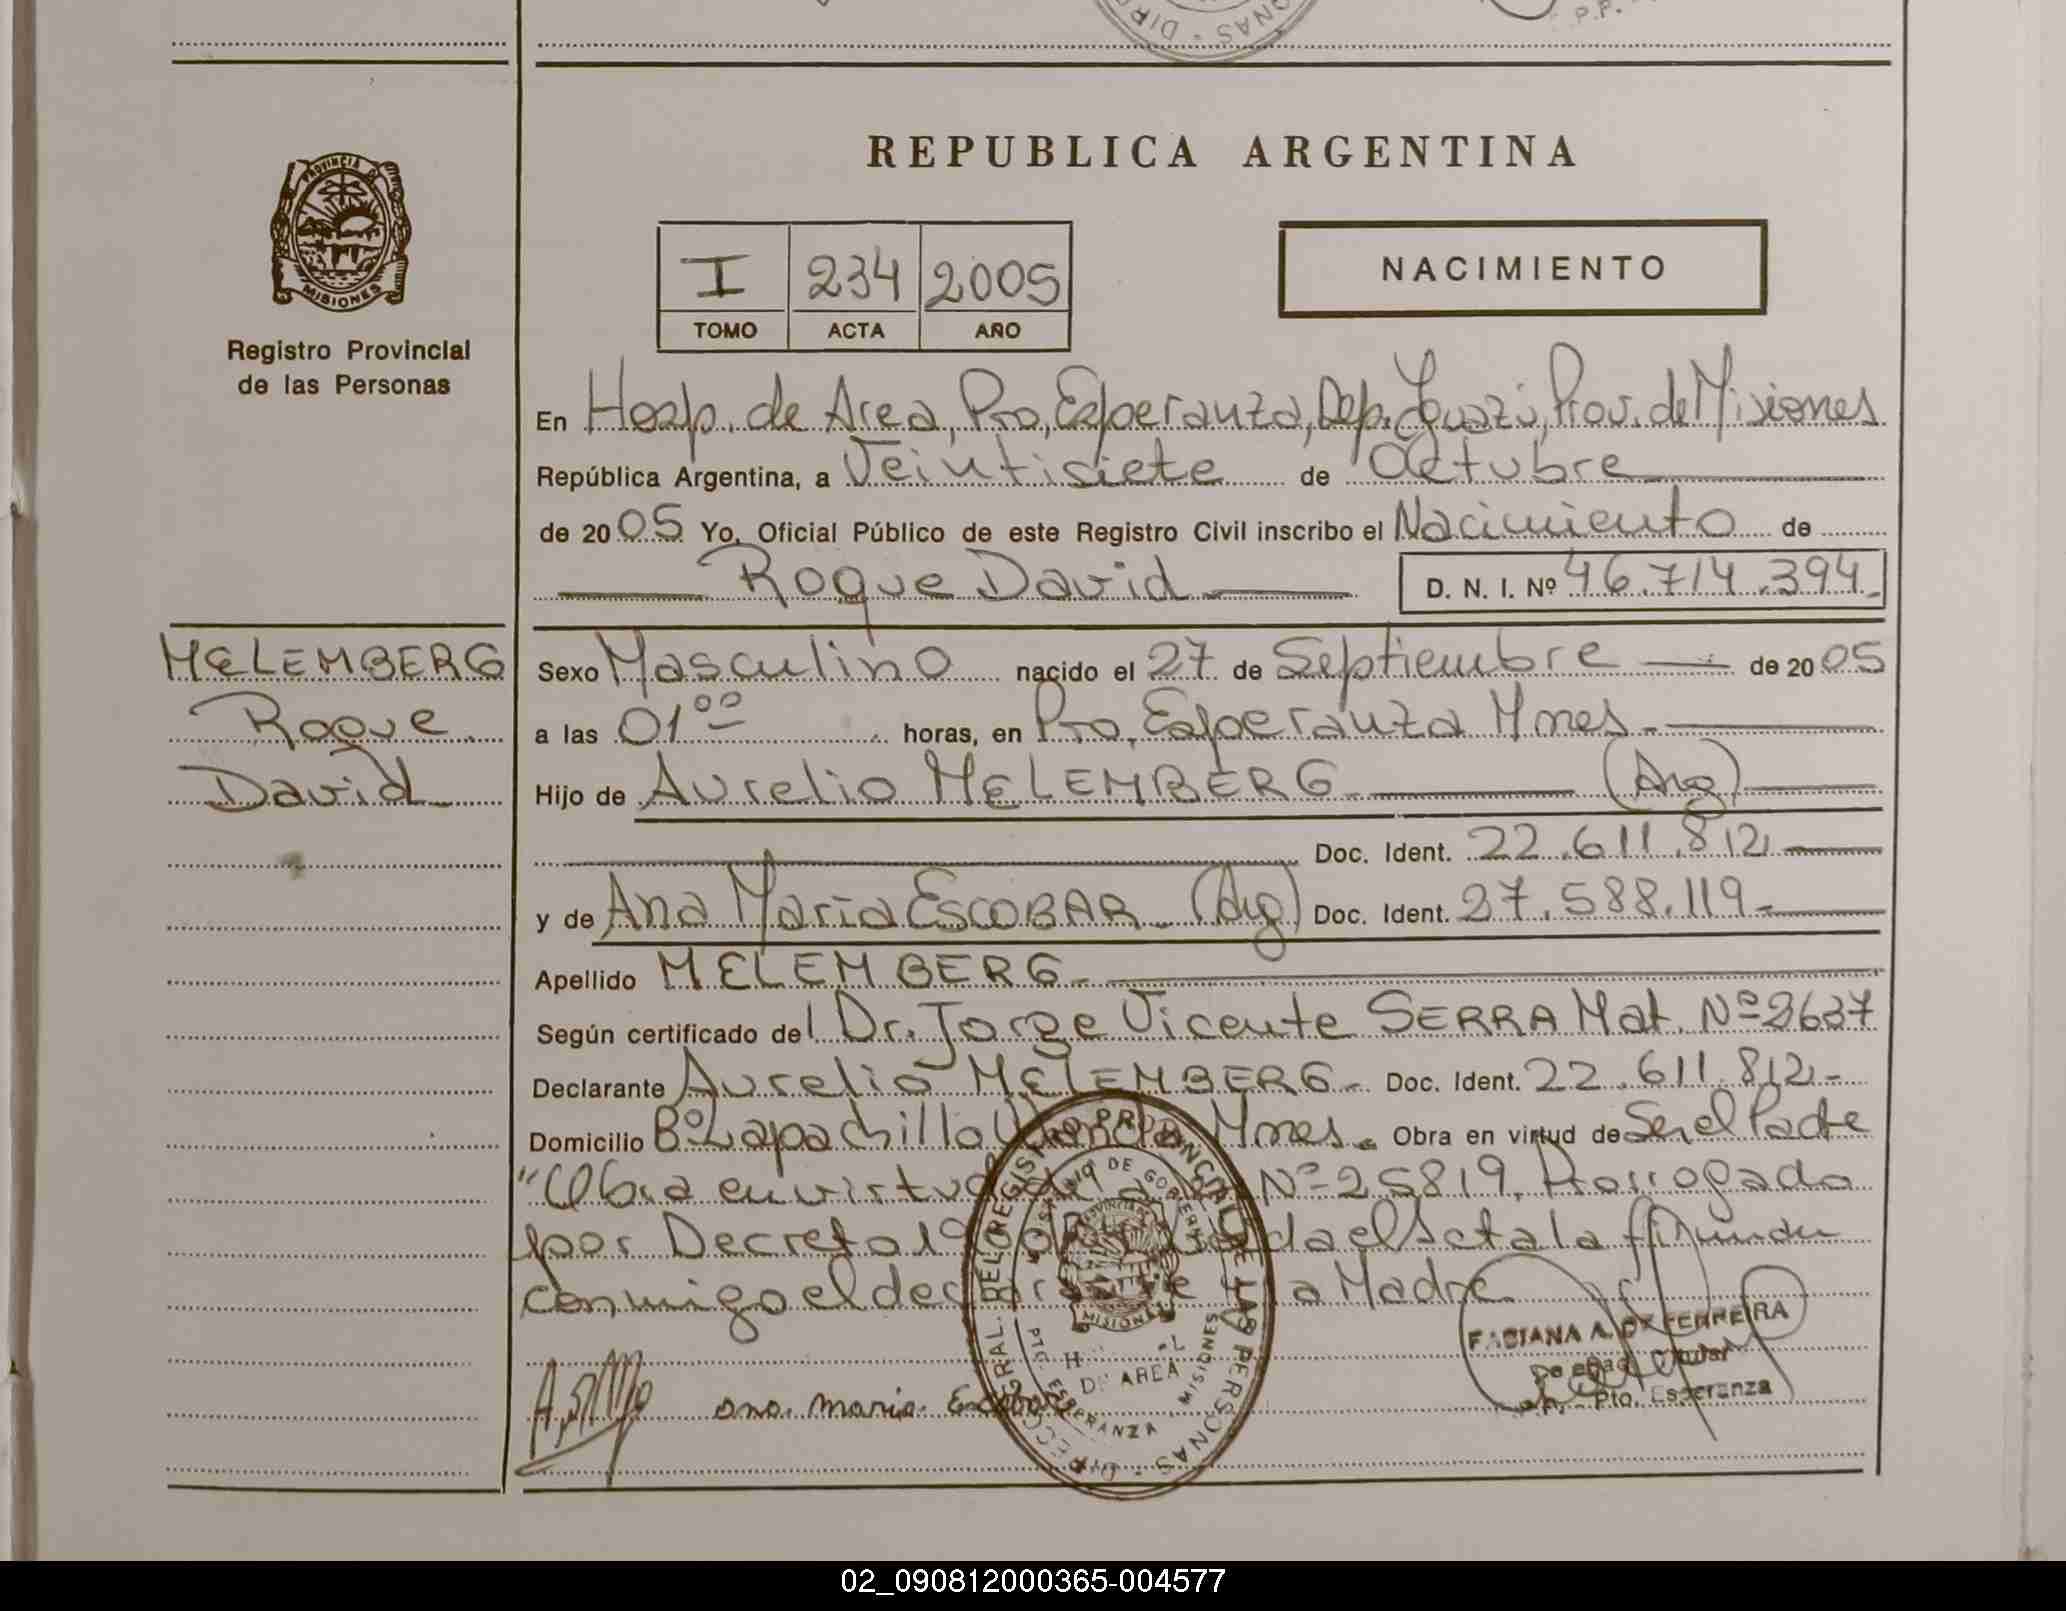 REPUBLICA ARGENTINA
PROVINCIA DE
MISIONES
Registro Provincial
de las Personas
I 234 2005
TOMO ACTA AÑO
NACIMIENTO
En Hosp. de Area, Pto, Esperanza, Dep. Iguazú, Prov. de Misiones
República Argentina, a Veintisiete de Octubre
de 2005 Yo, Oficial Público de este Registro Civil inscribo el Nacimiento de
Roque David D. N. I. Nº 46.714.394.
MELEMBERG
Roque
David
Sexo Masculino nacido el 27 de Septiembre de 2005
a las 01 00 horas, en Pto, Esperanza Mnes.
Hijo de Aurelio MELEMBERG (Arg)
Doc. Ident. 22.611.812
y de Ana María ESCOBAR (Arg) Doc. Ident. 27.588.119
Apellido MELEMBERG
Según certificado del Dr. Jorge Vicente SERRA Mat. Nº 2637
Declarante Aurelio MELEMBERG Doc. Ident. 22.611.812
Domicilio Bº Lapachillo Mnes. Obra en virtud de Ser el Padre
"Obra en virtud Nº 25819, Prorrogado
por Decreto el Acta la
conmigo el y la Madre
ana maria Escobar
DIRECC GRAL. DEL REGISTRO PROVINCIAL DE LAS PERSONAS
MINISTERIO DE GOBIERNO
PROVINCIA DE
MISIONES
DE AREA
PTO ESPERANZA MISIONES
FABIANA A. FERREIRA
Titular
Pto. Esperanza
02_090812000365-004577